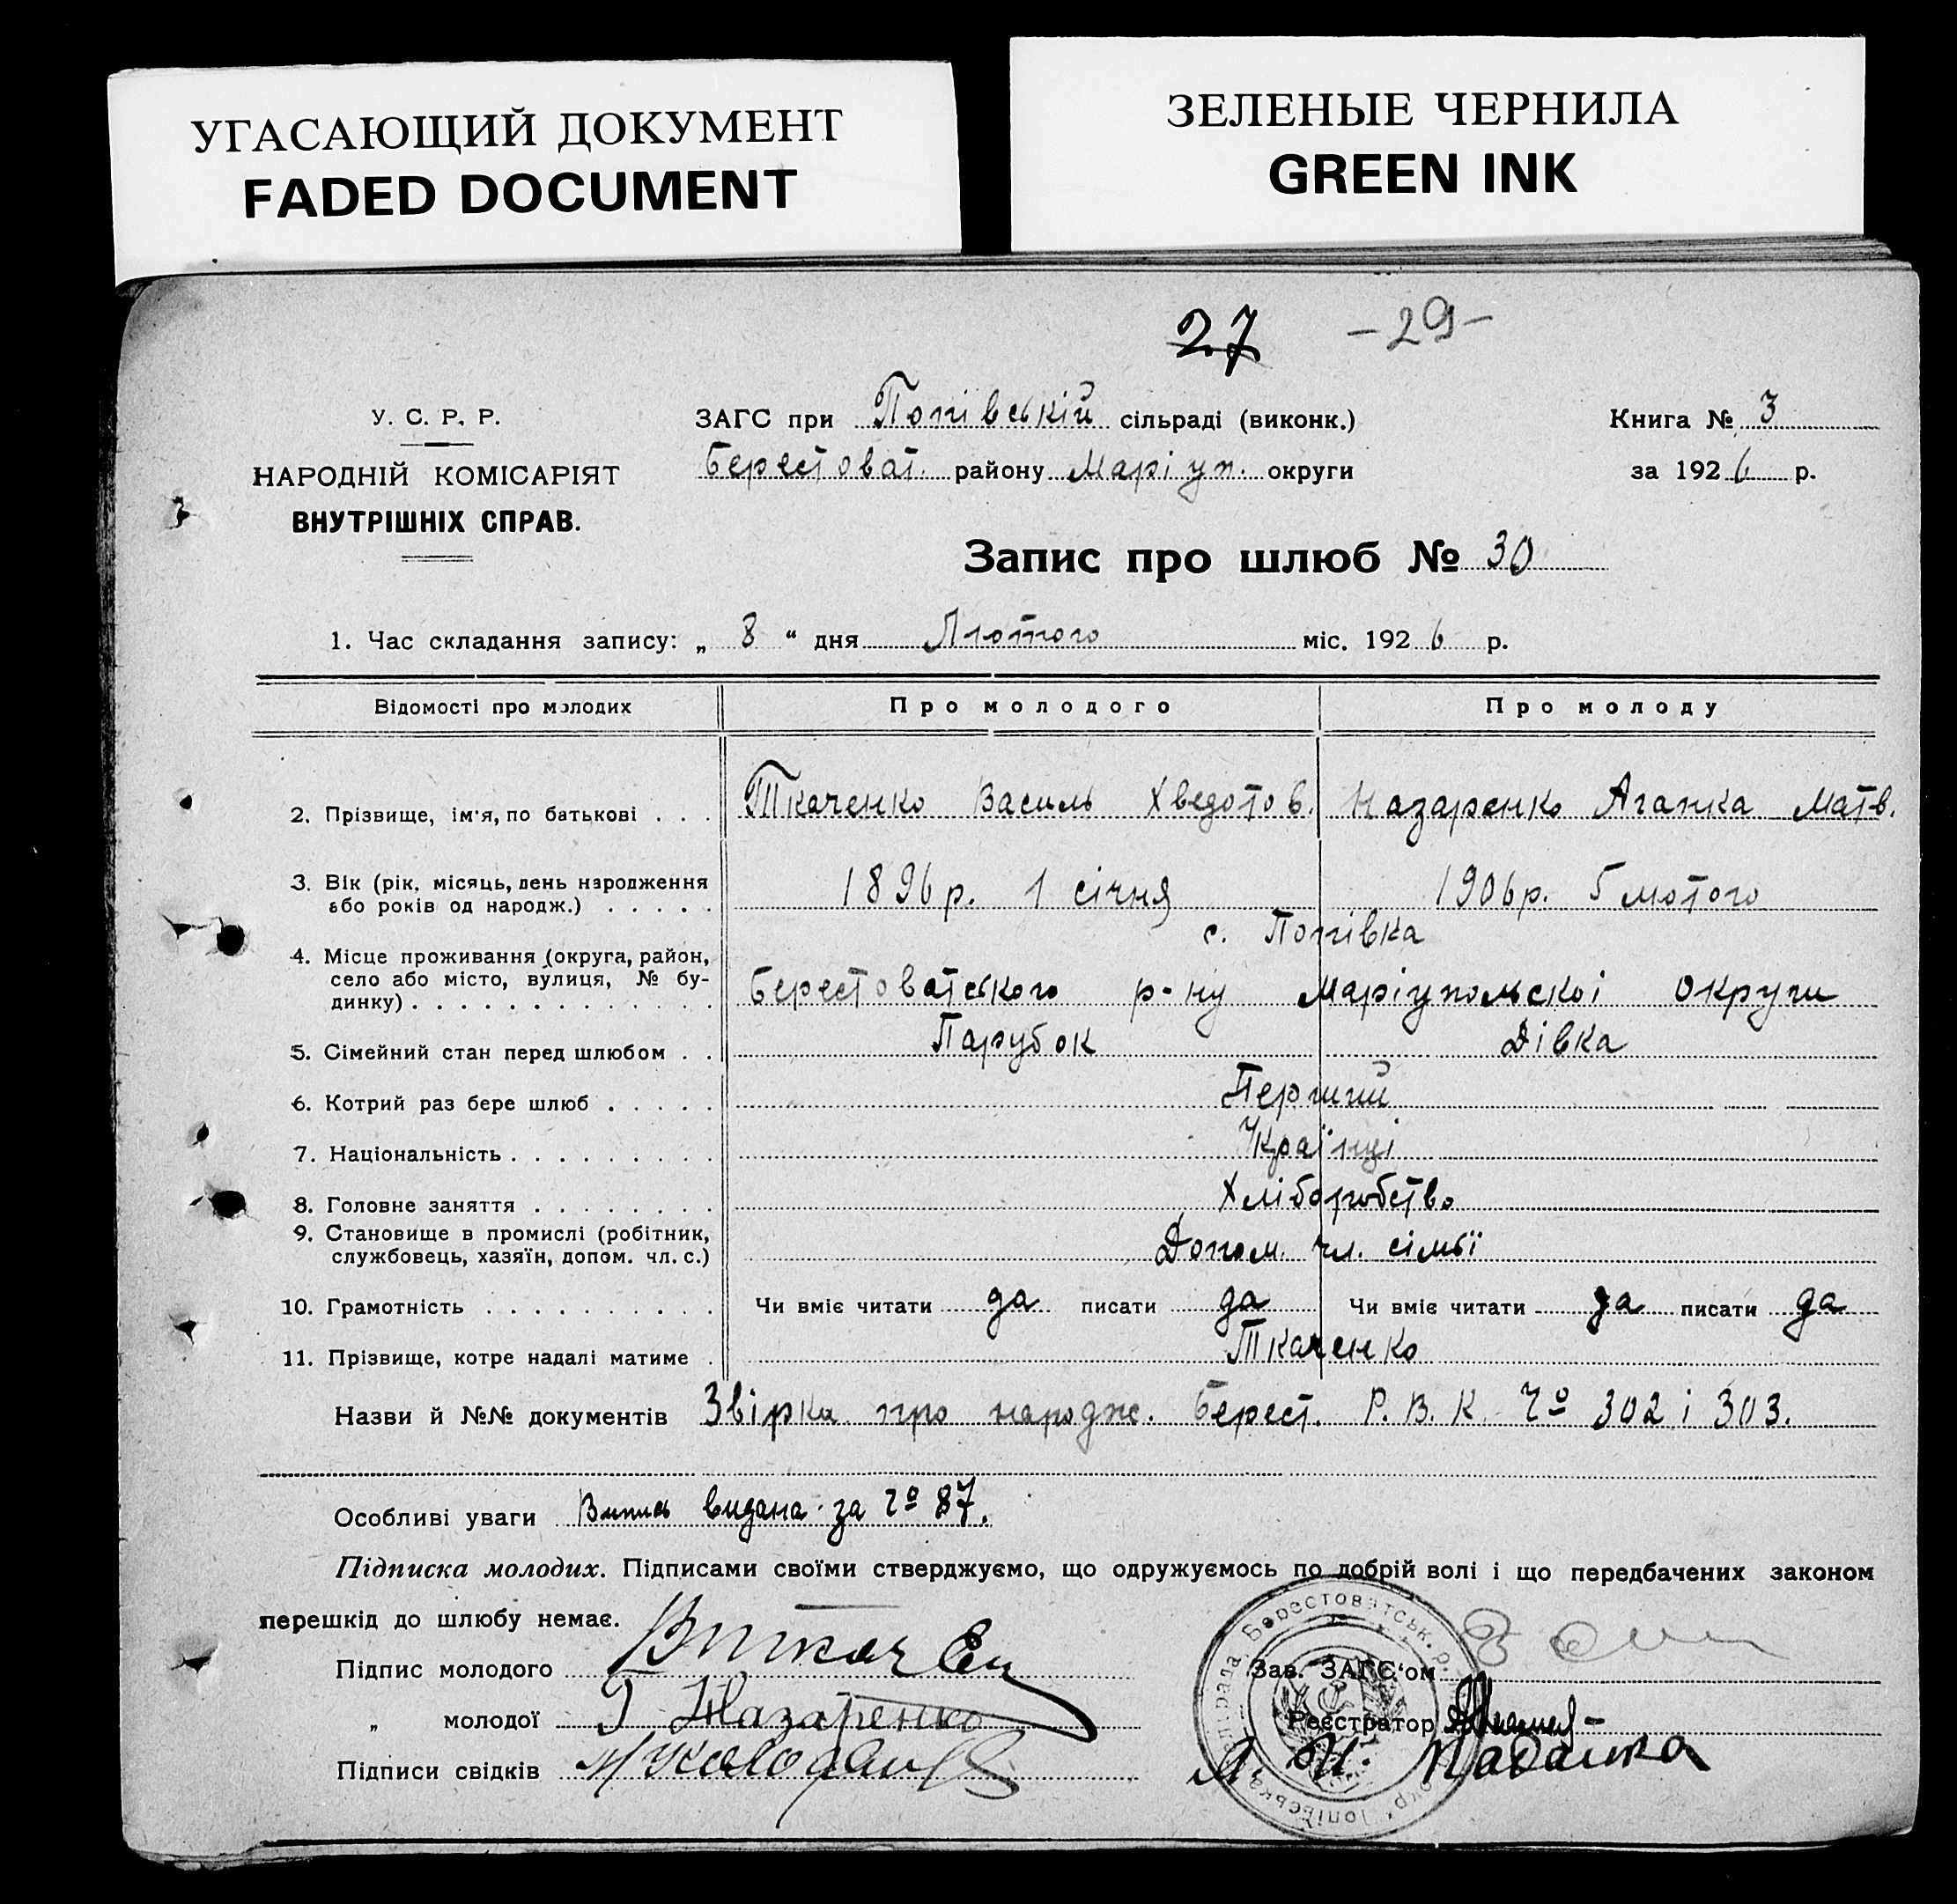 УГАСАЮЩИЙ ДОКУМЕНТ
FADED DOCUMENT
ЗЕЛЕНЫЕ ЧЕРНИЛА
GREEN INK
27 -29-
У. С. Р. Р.
НАРОДНІЙ КОМІСАРІЯТ
ВНУТРІШНІХ СПРАВ.
ЗАГС при Попівській сільраді (виконк.)
Берестоват. району Маріуп. округи
Книга № 3
за 1926 р.
Запис про шлюб № 30
1. Час складання запису: „ 8 “ дня Лютого міс. 1926 р.
Відомості про молодих Про молодого Про молоду
2. Прізвище, ім'я, по батькові . . . Ткаченко Василь Хведотов. Назаренко Агапка Матв.
3. Вік (рік, місяць, день народження
або років од народж.) . . . . . 1896 р. 1 січня 1906 р. 5 лютого
с. Попівка
4. Місце проживання (округа, район,
село або місто, вулиця, № бу-
динку) . . . . . . . . . . . . . Берестоватського р-ну Маріупольскоі округи
5. Сімейний стан перед шлюбом . . Парубок Дівка
6. Котрий раз бере шлюб . . . . . Перший
7. Національність . . . . . . . . . Українці
8. Головне заняття . . . . . . . . Хліборобство
9. Становище в промислі (робітник,
службовець, хазяїн, допом. чл. с.) Допом. чл. сімьї
10. Грамотність . . . . . . . . . . . Чи вміє читати да писати да Чи вміє читати да писати да
11. Прізвище, котре надалі матиме . Ткаченко
Назви й №№ документів Звірка про народж. Берест. Р. В. К. Чо 302 і 303.
Особливі уваги Випись видана за Чо 87.
Підписка молодих. Підписами своїми стверджуємо, що одружуємось по добрій волі і що передбачених законом
перешкід до шлюбу немає.
Підпис молодого
Зав. ЗАГС'ом
„ молодої Назаренко
Реєстратор
Підписи свідків